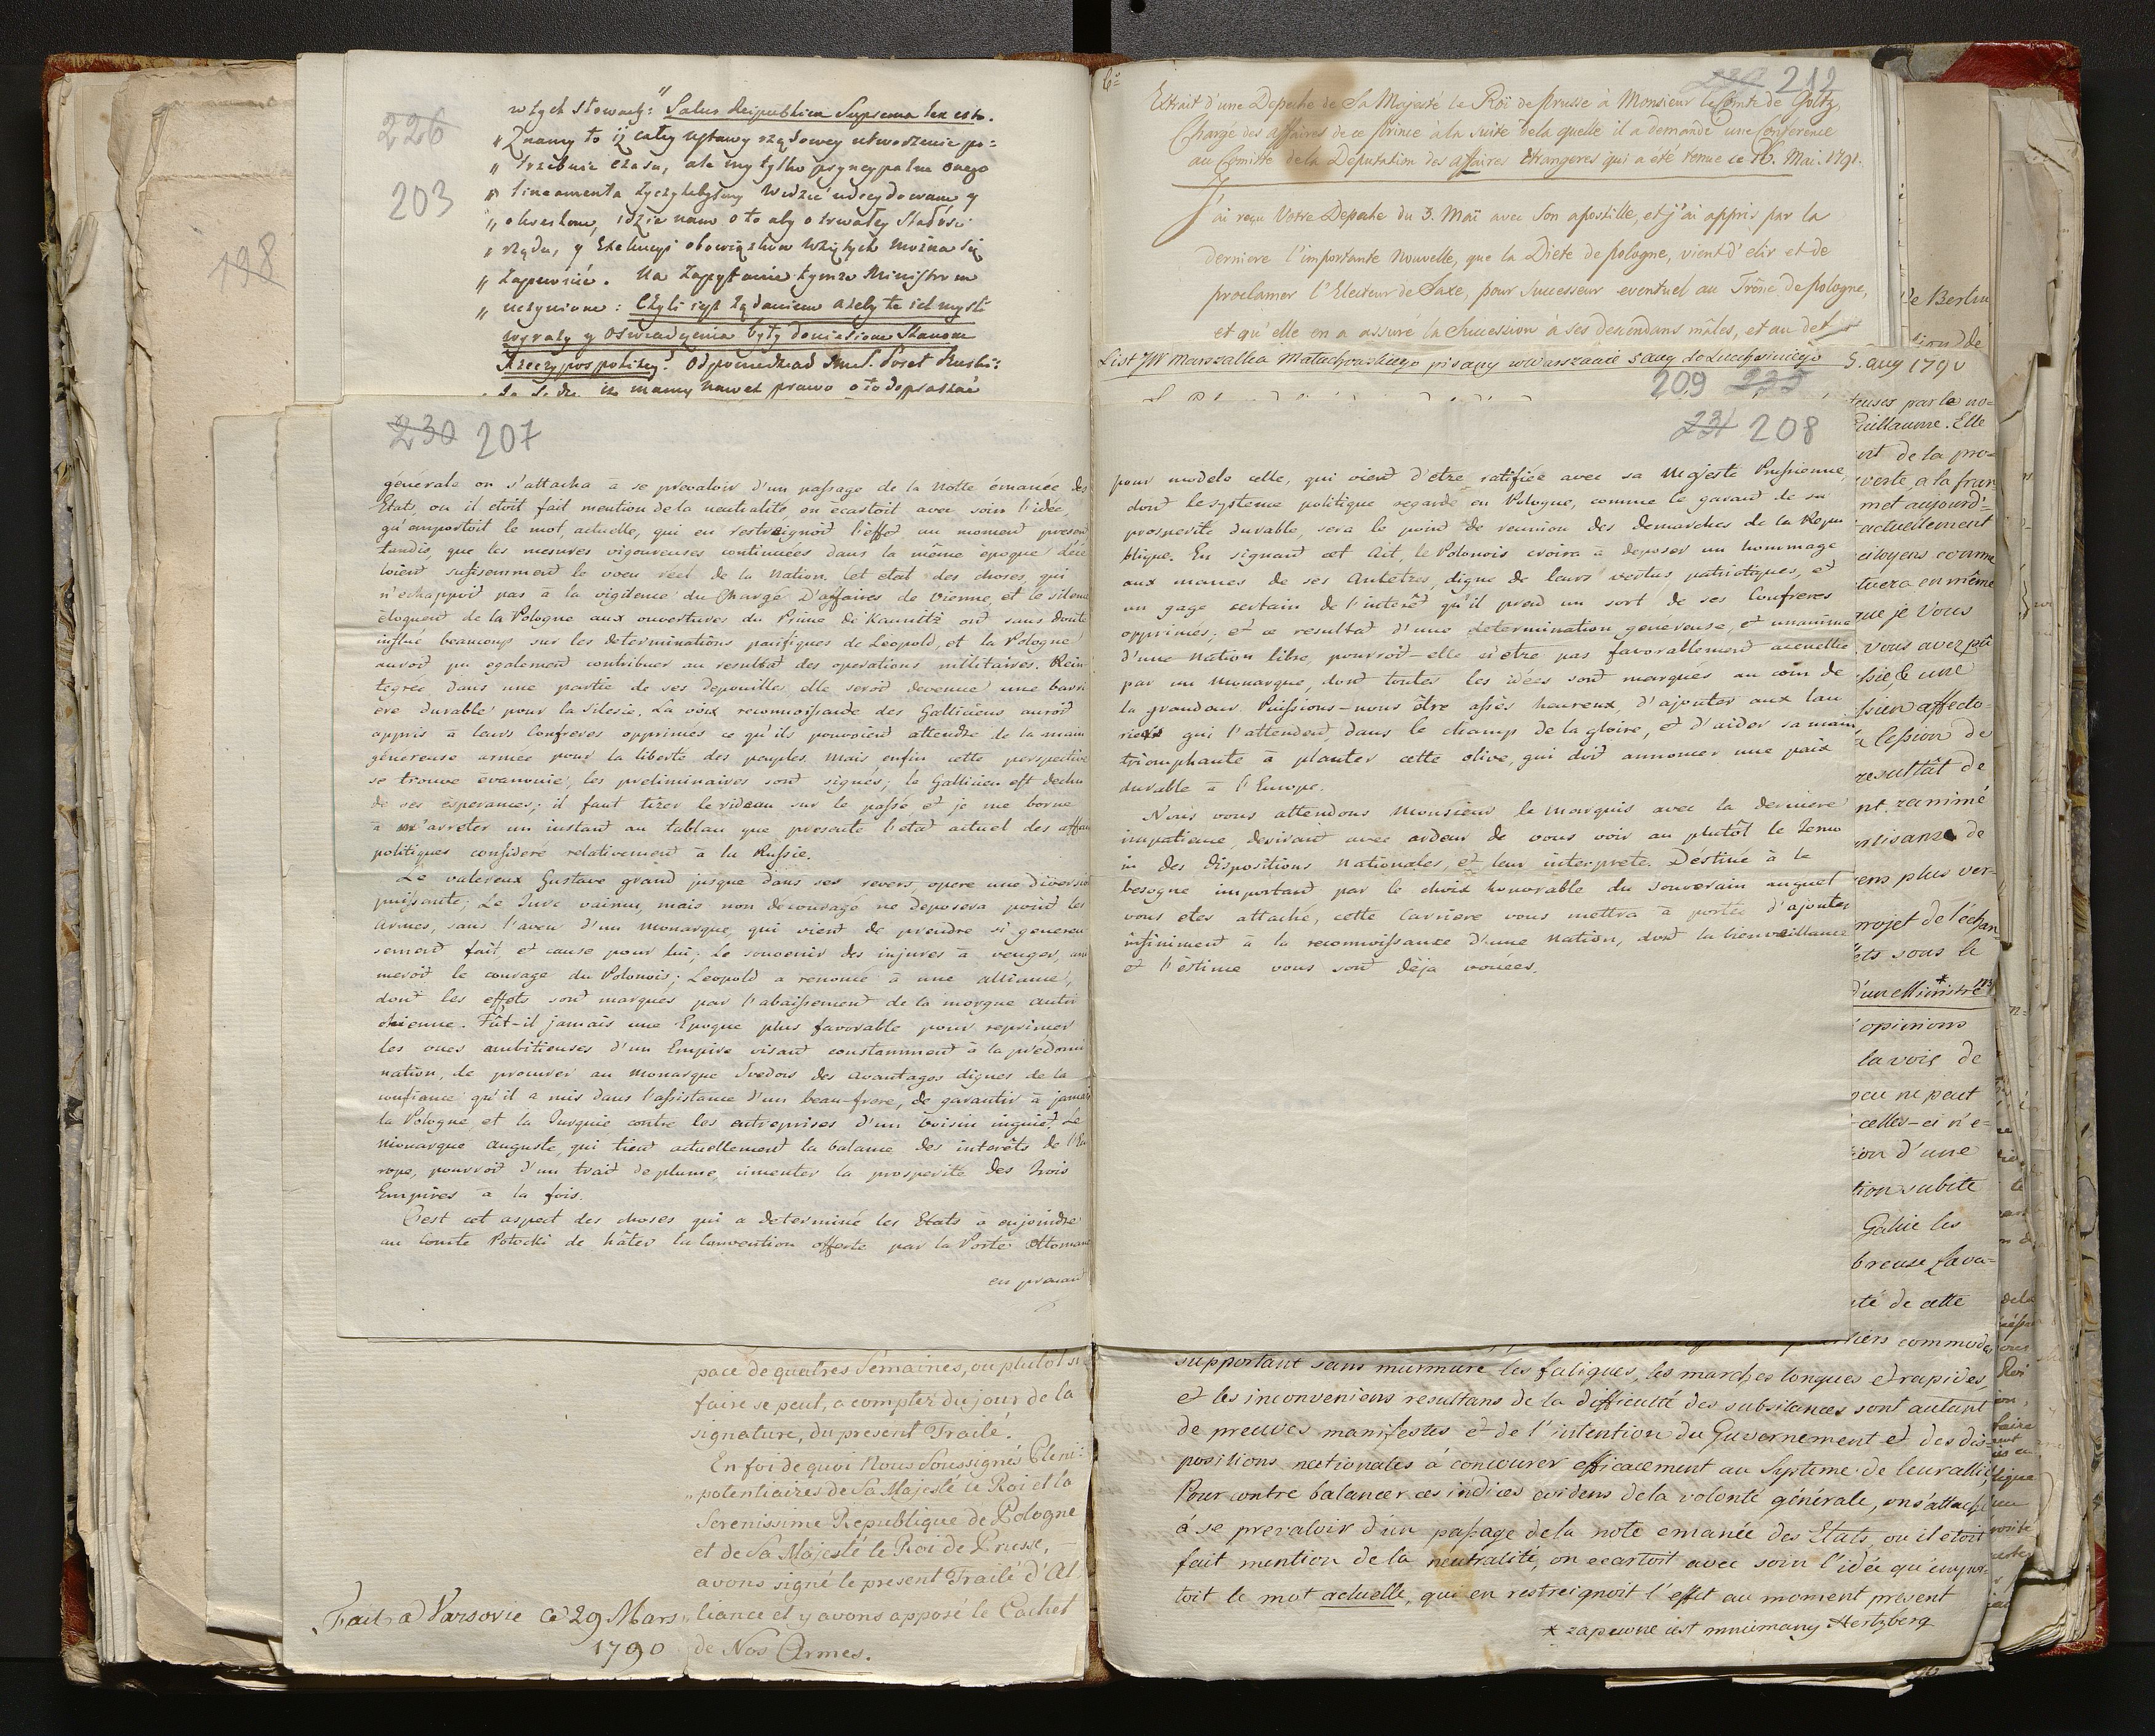 226
203
198
w tych słowach: "Salus Reipublica Suprema lex esto.
„ Znamy to iż cały ustawy rządowey utworzenie po=
„ trzebuie czasu, ale my tylko pryncypalne onego
„ lineamenta życzylibyśmy widzieć udecydowane y
„ okreslone, idzie nam o to aby o trwałey Stałości
„ rządu, y Exekucyi obowiązków wziętych można się
„ Zapewnić. Na Zapytanie tymże Ministrom
„ uczynione: Czyli iest żądaniem ażeby te ich myśli
wyrazy y oswiadczenia były doniesione Stanom
Rzeczypospolitey? Odpowiedział
iż mamy nawet prawo o to dopraszać
230 207
générale on s'attacha à se prevaloir d'un passage de la Notte émanée des
Etats, ou il etoit fait mention de la neutralité, on ecartoit avec soin l'idée,
qu'emportoit le mot, actuelle, qui en restreignoit l'effet au moment presen
tandis, que les mesures vigoureuses continuées dans la même èpoque dèce
loient sufisemment le voeu réel de la Nation. Cet etat des choses, qui
n'echappoit pas à la vigilence du Chargé D'affaires de Vienne, et le silence
éloquent de la Pologne aux ouvertures du Prince de Kaunitz ont sans doute
influé beaucoup sur les determinations pacifiques de Léopold, et la Pologne
auroit pu egalement contribuer au resultat des operations militaires. Rein
tegrée dans une partie de ses depouilles elle seroit devenue une barri
ere durable pour la Silesie. La voix reconnoissante des Galliciens auroit
appris à leurs Confreres opprimés ce qu'ils pouvoient attendre de la main
génereuse armée pour la liberté des peuples. Mais enfin cette perspective
se trouve èvanouie, les preliminaires sont signés; le Gallicien est dechu
de ses èsperances; il faut tirer le rideau sur le passé et je me borne
à m'arreter un instant au tableau que presente l'etat actuel des affai
politiques consideré relativement à la Russie.
Le valereux Gustave grand jusque dans ses revers, opere une diversio
puissante; Le Turc vaincu, mais non découragé ne deposera point les
armes, sans l'aveu d'un Monarque, qui vient de prendre si genereu
sement fait et cause pour lui; le souvenir des injures à venger, ani
meroit le courage du Polonois; Leopold a renoncé à une alliance,
dont les effets sont marqués par l'abaissement de la morgue autri
chienne. Fût-il jamais une Epoque plus favorable pour reprimer
les vues ambitieuses d'un Empire visant constamment à la prédomi
nation, de procurer au Monarque Svedois des Avantages dignes de la
confiance qu'il a mis dans l'assistance d'un beau-frere, de garantir à jamais
la Pologne, et la Turquie contre les entreprises d'un voisin inquiet. Le
Monarque Auguste, qui tient actuellement la balance des interêts de l'Eu
rope, pourroit d'un trait de plume, cimenter la prosperité des trois
Empires à la fois.
C'est cet aspect des choses qui a determiné les Etats à enjoindre
au Comte Potocki de hâter la Convention offerte par la Porte Ottomane
en prenant
pace de quatres Semaines, ou plutôt si
faire se peut, a compter du jour de la
signature, du present Traité.
En foi de quoi Nous Soussignés Pleni=
„potentiaires de Sa Majesté le Roi et la
Serenissime Republique de Pologne
et de Sa Majesté le Roi de Prusse,
avons signé le present Traité d'Al
liance et y avons apposé le Cachet
de Nos Armes.
Fait a Varsovie ce 29 Mars
1790
212
Extrait d'une Depeche de Sa Majesté le Roi de Prusse à Monsieur le Comte de Goltz,
Chargé des affaires de ce Prince à la suite de la quelle il a demandé une Conference
au Comitte de la Deputation des affaires Etrangeres qui a eté tenue le 16. Mai. 1791.
J'ai reçu Votre Depeche du 3. Maï avec son apostille, et j'ai appris par la
derniere l'importante Nouvelle, que la Diete de Pologne, vient d'elir et de
proclamer l'Electeur de Saxe, pour Successeur eventuel au Trône de Pologne,
et qu'elle en a assuré la Succession à ses decendans mâles, et au def
List JW Marszałka Małachowskiego pisany w Warszawie 5 aug do Lucchesiniego 5. aug 1790
209 235
231 208
pour modele celle, qui vient d'etre ratifiée avec sa Majesté Prussienne,
dont le systeme politique regardé en Pologne, comme le garant de sa
prosperité durable, sera le point de reunion des demarches de la Repu
blique. En signant cet Act, le Polonois croira à deposer un hommage
aux manes de ses Ancètres, digne de leurs vertus patriotiques, et
un gage certain de l'interêt qu'il prend au sort de ses Confreres
opprimés; et ce resultat d'une determination genereuse, et unanime
d'une Nation libre, pourroit-elle n'etre pas favorablement acceuillie
par un Monarque, dont toutes les idées sont marqués au coin de
la grandeur. Puissions-nous être assès heureux, d'ajouter aux lau
riers qui l'attendent dans le champ de la gloire, et d'aider sa main
triomphante à planter cette olive, qui doit annoncer une paix
durable à l'Europe.
Nous vous attendons Monsieur le Marquis avec la derniere
impatience, desirant avec ardeur de vous voir au plutôt le temo
in des dispositions Nationales, et leur interprete. Déstiné à la
besogne important par le choix honorable du Souverain auquel
vous etes attaché, cette Carriere vous mettra à portée d'ajouter
infiniment à la reconnoissance d'une Nation, dont la bienveillance
et l'èstime vous sont dèja vouées.
supportant sans murmure les fatigues, les marches longues et rapides,
et les inconveniens resultans de la difficulté des subsitances sont autant
de preuves manifestes et de l'intention du Guvernement et des dis=
positions nationales á concourer efficacement au Systeme de leur allié,
Pour contre balancer ces indices evidens de la volonté générale, on s'attach
á se prevaloir d'un passage de la note emanée des Etats, ou il etoit
fait mention de la neutralité, on ecartoit avec soin l'idée qu'empor=
toit le mot actuelle, qui en restreignoit l'effet au moment present
* zapewne iest mniemany Hertzberg
de Berlin
teuses par le no=
Guillaume. Elle
nt de la pro=
verte, a la fran
met aujourd'
actuellement
citoyens comme
tuera en même
que je Vous
vous avez pû
ssie, & une
sion affecto-
a Cession de
resultât de
nt. ranimé
ens plus ver-
projet de l'échan-
ets sous le
d'un Ministre *
opinions
la voix de
peu ne peut
celles-ci n'e=
ion d'une
tion subite
Galicie les
breuse Cava=
té de cette
liers commodes